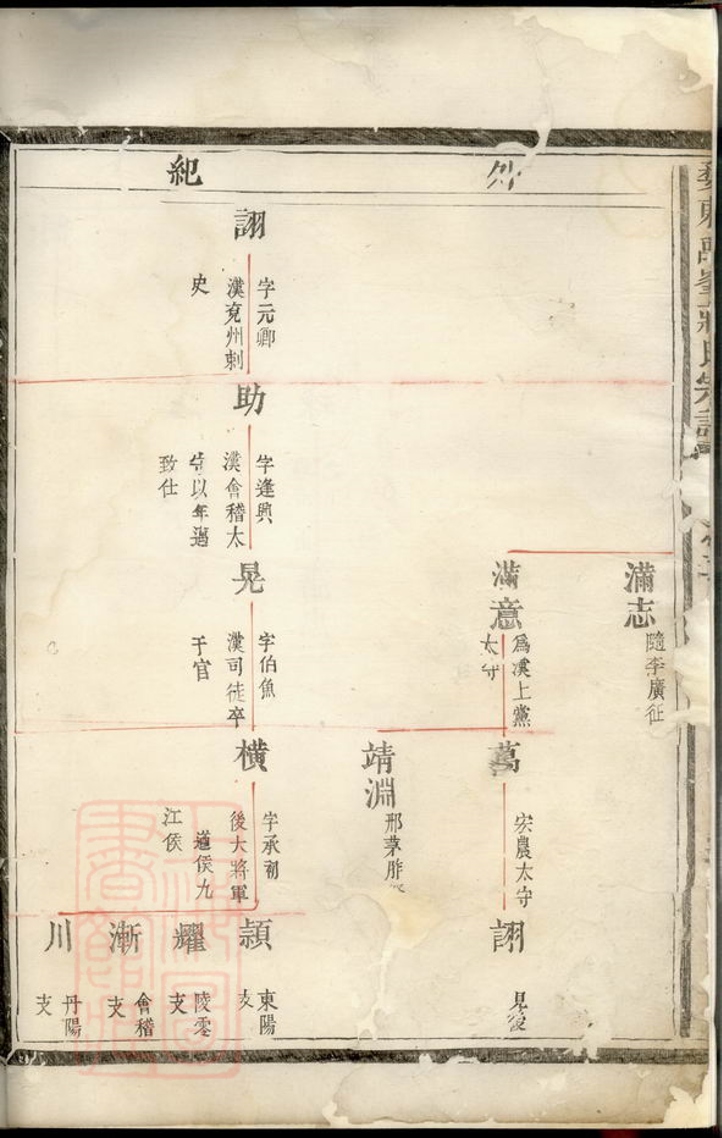 紀
滿志
隨李廣征
滿意
為漢上黨
太守
萬
宏農太守
詡
見後
靖淵
詡
字元卿
漢兗州刺
史
助
字逢興
漢會稽太
守以年邁
致仕
晃
字伯魚
漢司徒卒
于官
橫
字承初
後大將軍
逡侯九
江侯
頴
東陽
支
耀
陵零
支
漸
會稽
支
川
丹陽
支